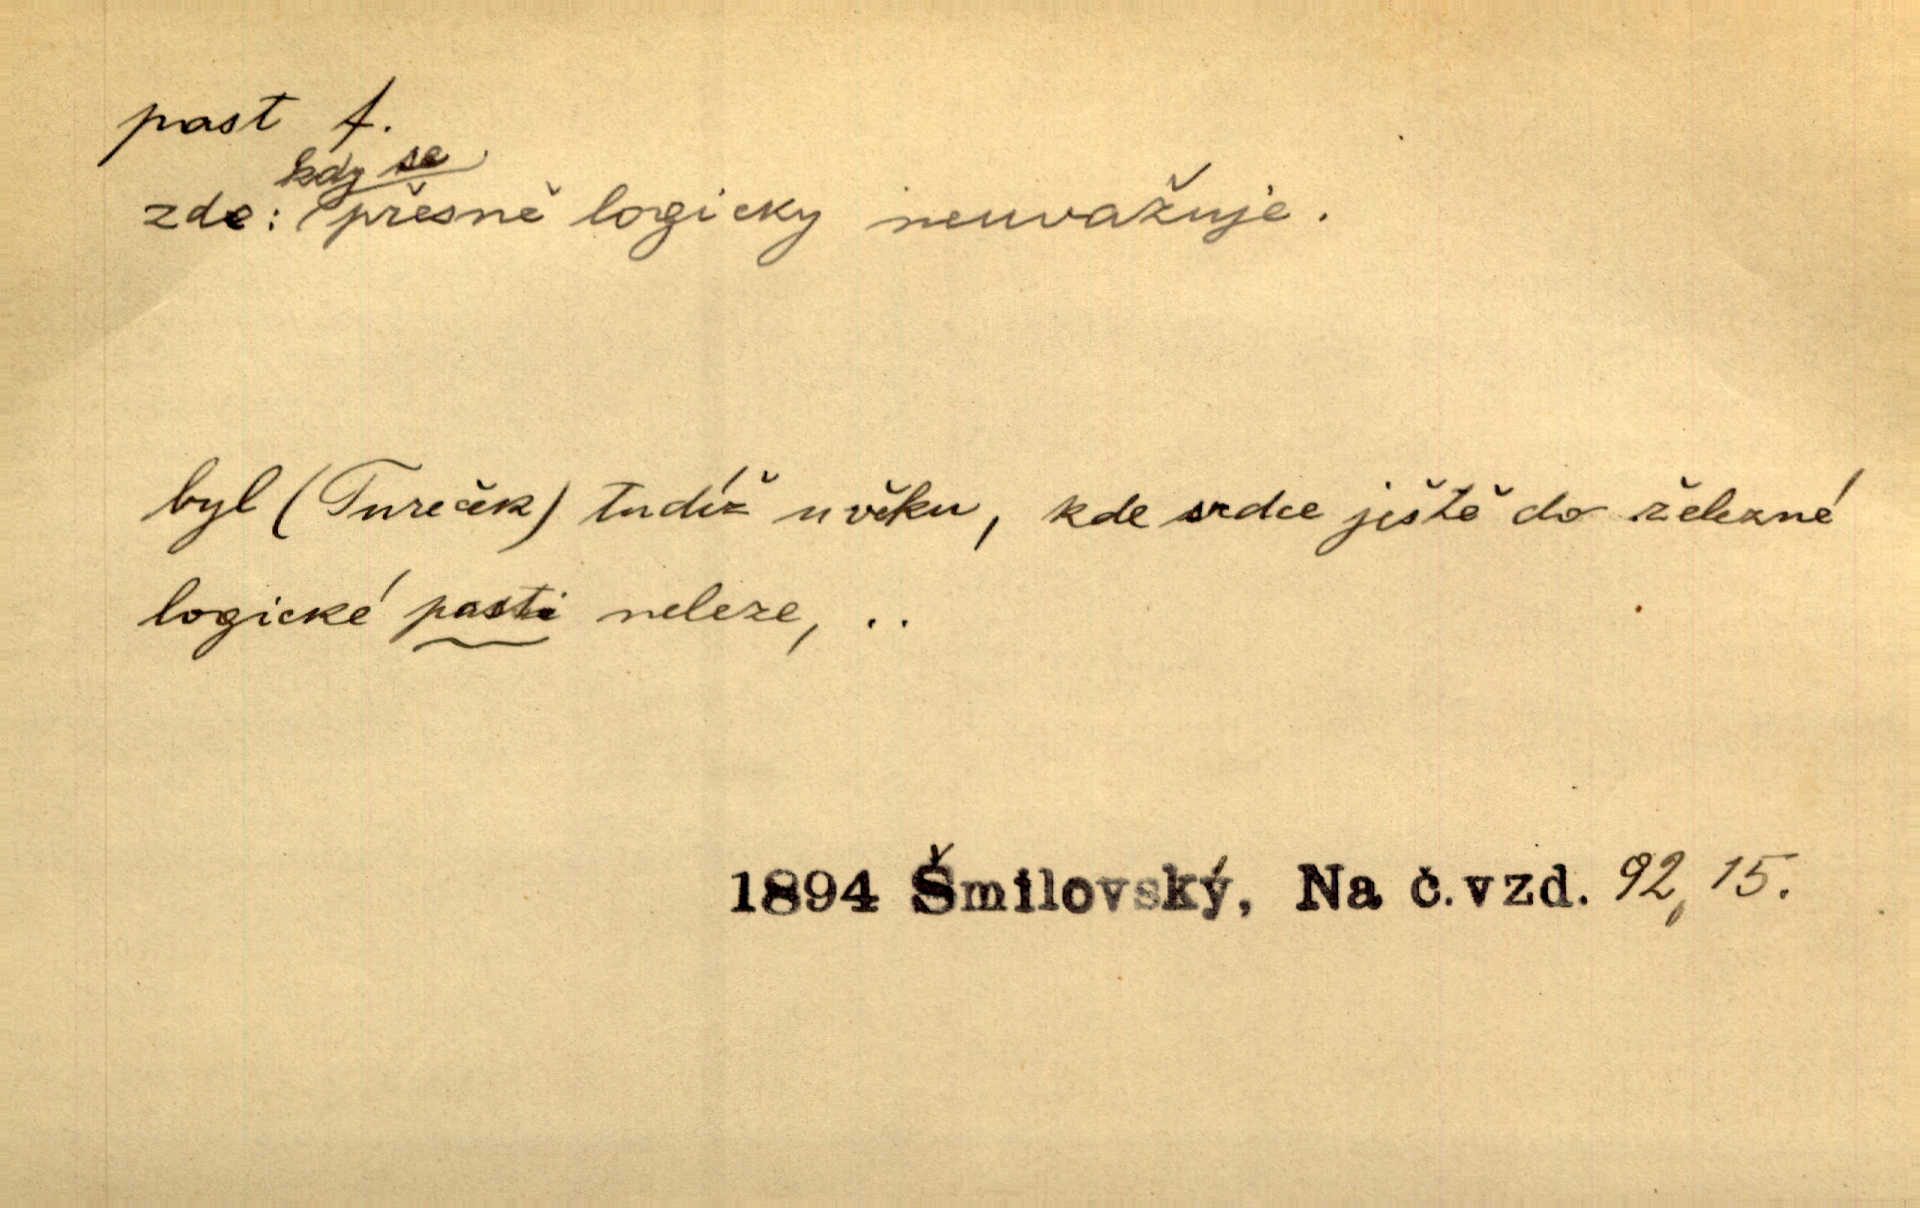 past f.
kdy se
zde: přesně logicky neuvažuje.
byl (Tureček) tudíž u věku, kde srdce ještě do železné
logické pasti neleze, ..
1894 Šmilovský, Na č.vzd. 92, 15.